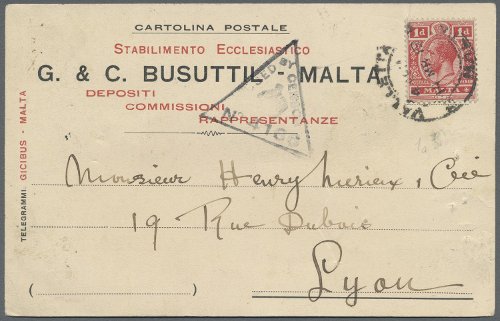 CARTOLINA POSTALE
STABILIMENTO ECCLESIASTICO
G. & C. BUSUTTIL - MALTA
DEPOSITI
COMMISSIONI
RAPPRESENTANZE
TELEGRAMMI: GICIBUS - MALTA
1d 1d
MALTA
VALLETTA
BY CENSOR
No 4133
Monsieur Henry Mérieux, Cie
19 Rue Dubois
Lyon
( )